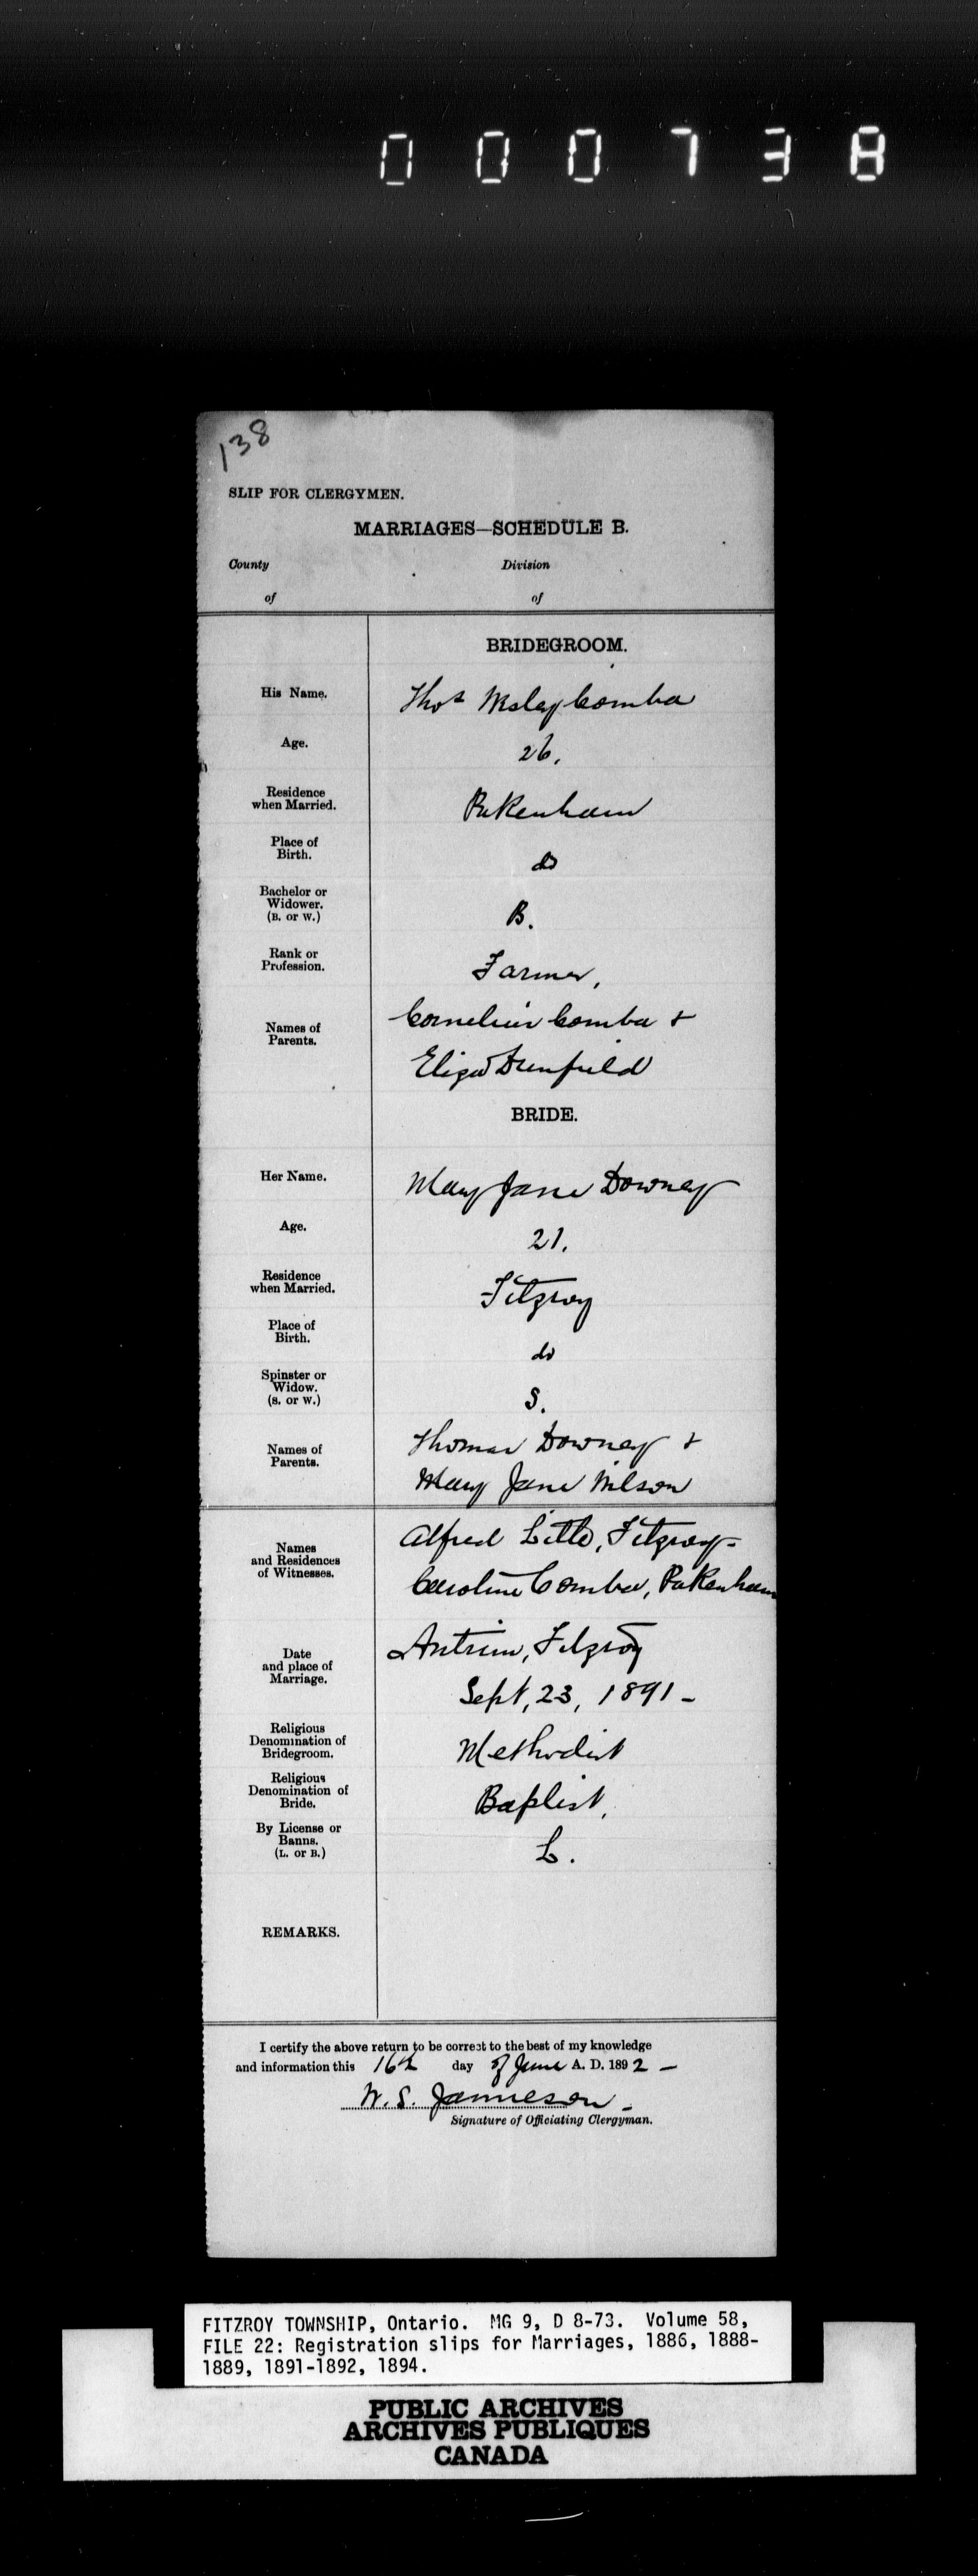 000738
138
SLIP FOR CLERGYMEN.
MARRIAGES—SCHEDULE B.
County Division
of of
BRIDEGROOM.
His Name. Thos Wesley Comba
Age. 26.
Residence when Married. Pakenham
Place of Birth. do
Bachelor or Widower. (B. or W.) B.
Rank or Profession. Farmer,
Names of Parents. Cornelius Comba &
Eliza Dunfield
BRIDE.
Her Name. Mary Jane Downey
Age. 21.
Residence when Married. Fitzroy
Place of Birth. do
Spinster or Widow. (S. or W.) S.
Names of Parents. Thomas Downey &
Mary Jane Wilson
Names and Residences of Witnesses. Alfred Little, Fitzroy-
Caroline Comba, Pakenham
Date and place of Marriage. Antrim, Fitzroy
Sept, 23, 1891-
Religious Denomination of Bridegroom. Methodist
Religious Denomination of Bride. Baptist,
By License or Banns. (L. or B.) L.
REMARKS.
I certify the above return to be correct to the best of my knowledge
and information this 16th day of June A. D. 1892 -
W. S. Jamieson -
Signature of Officiating Clergyman.
FITZROY TOWNSHIP, Ontario. MG 9, D 8-73. Volume 58,
FILE 22: Registration slips for Marriages, 1886, 1888-
1889, 1891-1892, 1894.
PUBLIC ARCHIVES
ARCHIVES PUBLIQUES
CANADA